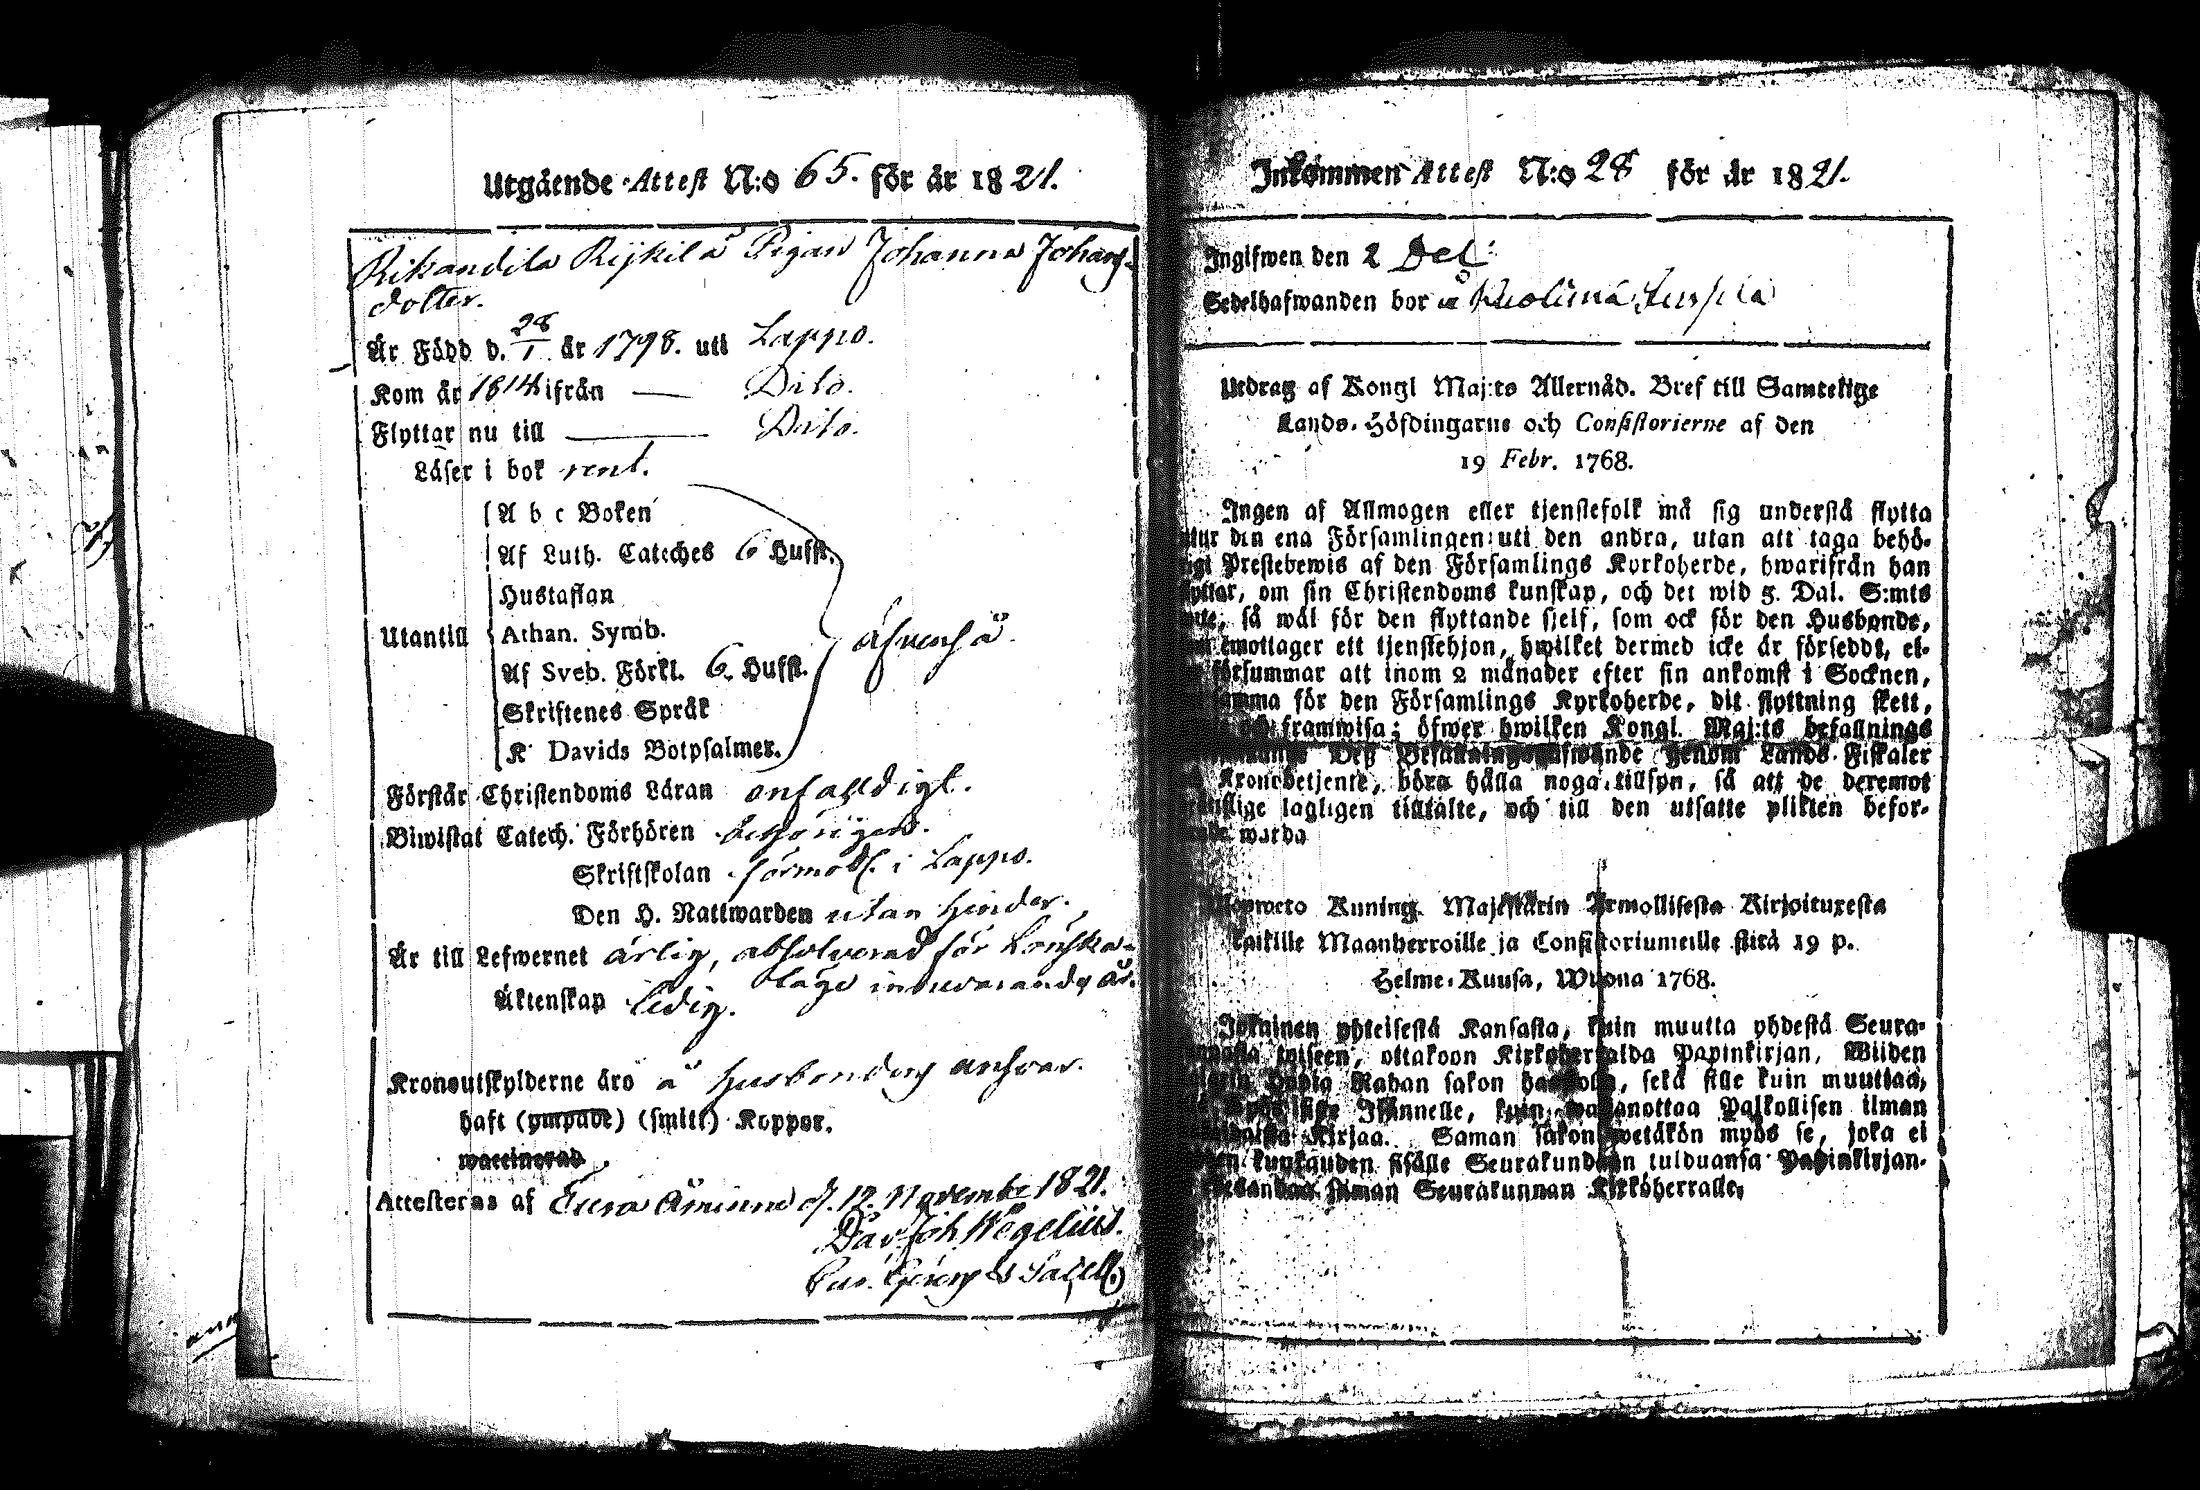 Utgående Attest N:o 65. för år 1821.
Pigan Johanna Johans-
dotter.
Är Född d. 28/1 år 1798. uti Lappo.
Kom år 1814 ifrån — Dito.
Flyttar nu till — Dito.
Läser i bok rent.
A b c Boken
Af Luth. Cateches 6 Hufst.
Hustaflan
Utantill Athan. Symb. äfvenså.
Af Sveb. Förkl. 6. Hufst.
Skriftenes Språk
K Davids Botpsalmer.
Förstår Christendoms Läran enfaldigt.
Biwistat Catech. Förhören behörigen.
Skriftskolan förmodl. i Lappo.
Den H. Nattwarden utan hinder.
Är till Lefwernet ärlig, absolverad för Lönska-
läge innevarande år.
Äktenskap ledig.
Kronoutskylderne äro å husbondens ansvar.
haft (ympade) (smitt) Koppor.
waccinerad
Attesteras af Eura Åminne d. 12. November 1821.
Dav. Joh. Wegelius.
Inkommen Attest N:o 28 för år 1821.
Ingifwen den 2 Dec:
Sedelhafwanden bor å
Utdrag af Kongl Maj:ts Allernåd. Bref till Samtelige
Lands-Höfdingarne och Consistorierne af den
19 Febr. 1768.
Ingen af Allmogen eller tjenstefolk må sig understå flytta
den ena Församlingen uti den andra, utan att taga behö-
Prestebewis af den Församlings Kyrkoherde, hwarifrån han
om sin Christendoms kunskap, och det wid 5. Dal. S:mts
så wäl för den flyttande sjelf, som ock för den Husbonde,
emottager ett tjenstehjon, hwilket dermed icke är försedt, el-
försummar att inom 2 månader efter sin ankomst i Socknen,
samma för den Församlings Kyrkoherde, dit flyttning skett,
framwisa; öfwer hwilken Kongl. Maj:ts befallnings
Deß Befallningshafwande genom Lands-Fiskaler
Kronobetjente, böra hålla noga tillsyn, så att de deremot
lagligen tilltalte, och till den utsatte plikten befor-
warda
Kuning. Majestätin Armollisesta Kirjoituxesta
kaikille Maanherroille ja Consistoriumeille siitä 19 p.
Helme-Kuusa, Wuona 1768.
Jokainen yhteisestä Kansasta, kuin muutta yhdestä Seura-
toiseen, ottakoon Kirkoherralda Papinkirjan, Wiiden
Rahan sakon sekä sille kuin muuttaa,
Isännelle, kuin wastanottaa Palkollisen ilman
Kirjaa. Saman sakon wetäkön myös se, joka ei
kuukauden sisälle Seurakundaan tulduansa Papinkirjan-
saman Seurakunnan Kirkoherralle,